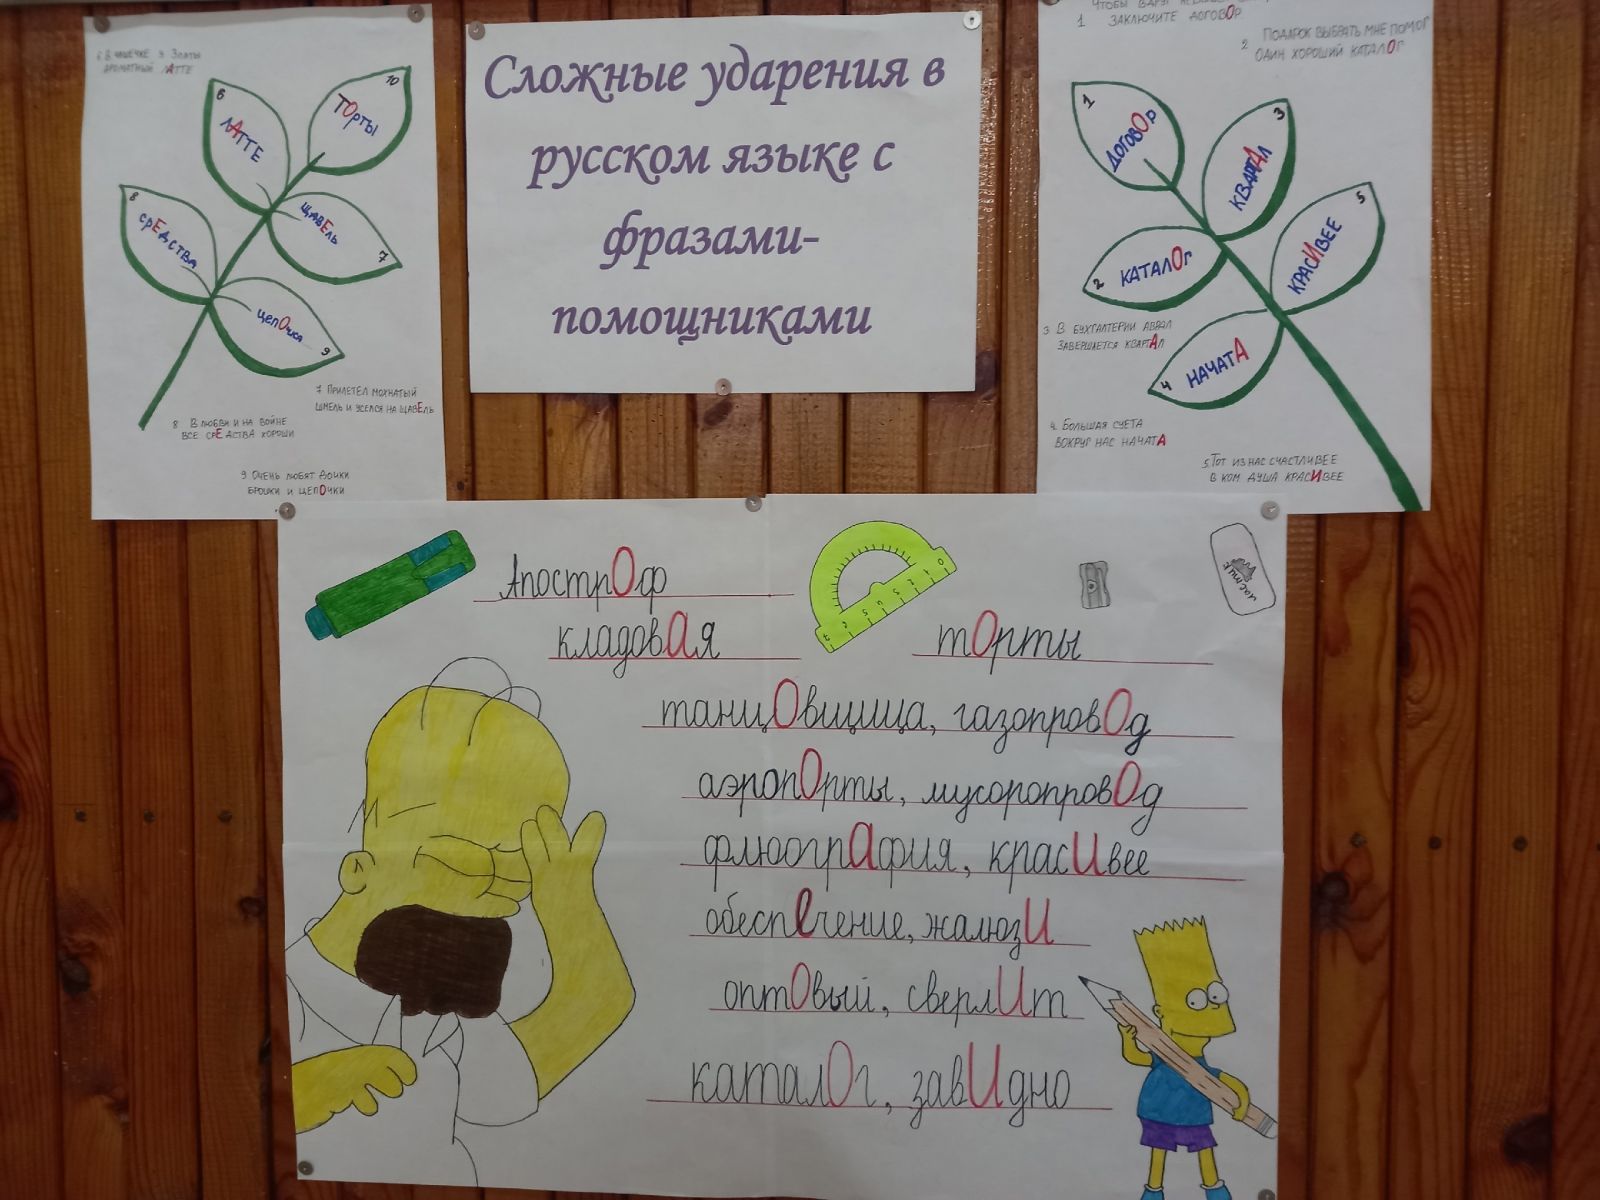 6 В чашечке у Златы
ароматный лАтте
6
лАТТЕ
10
ТОрты
8
срЕдства
щавЕль
7
цепОчка
9
7 Прилетел мохнатый
шмель и уселся на щавЕль
8 В любви и на войне
все срЕдства хороши
9 Очень любят дочки
брошки и цепОчки
Сложные ударения в
русском языке с
фразами-
помощниками
1 заключите договОр.
2 Подарок выбрать мне помог
один хороший каталОг
1
договОр
3
КВАРТАЛ
5
КРАСИВЕЕ
2 КАТАЛОг
4 НАЧАТА
3 В бухгалтерии аврал
завершается квартАл
4. Большая суета
вокруг нас начатА
5 Тот из нас счастливее
в ком душа красИвее
АпострОф
кладовАя
тОрты
танцОвщица, газопровОд
аэропОрты, мусоропровОд
флюогрАфия, красИвее
обеспЕчение, жалюзИ
оптОвый, сверлИт
каталОг, завИдно